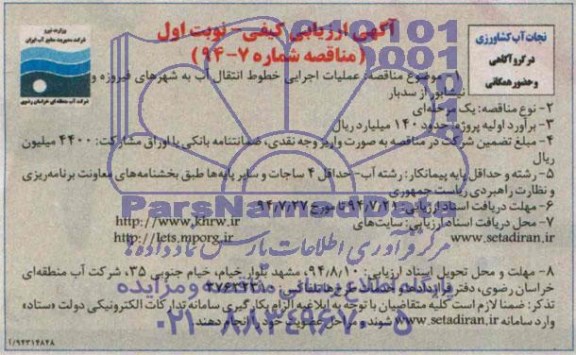 آگهی ارزیابی کیفی- نوبت اول
(مناقصه شماره ۷-۹۴)
نجات آب کشاورزی
در گرو آگاهی
و حضور همگانی
وزارت نیرو
شرکت مدیریت منابع آب ایران
شرکت آب منطقه‌ای خراسان رضوی
۱- موضوع مناقصه: عملیات اجرایی خطوط انتقال آب به شهرهای فیروزه و
نیشابور از سدبار
۲- نوع مناقصه: یک مرحله‌ای
۳- برآورد اولیه پروژه: حدود ۱۴۰ میلیارد ریال
۴- مبلغ تضمین شرکت در مناقصه به صورت واریز وجه نقدی، ضمانتنامه بانکی یا اوراق مشارکت: ۴۴۰۰ میلیون
ریال
۵- رشته و حداقل پایه پیمانکار: رشته آب- حداقل ۴ ساجات و سایر پایه‌ها طبق بخشنامه‌های معاونت برنامه‌ریزی
و نظارت راهبردی ریاست جمهوری
۶- مهلت دریافت اسناد ارزیابی: ۹۴/۷/۲۱ تا مورخ ۹۴/۷/۲۷
۷- محل دریافت اسناد ارزیابی: سایت‌های http://www.khrw.ir
www.setadiran.ir http://iets.mporg.ir
۸- مهلت و محل تحویل اسناد ارزیابی: ۹۴/۸/۱۰، مشهد بلوار خیام، خیام جنوبی ۳۵، شرکت آب منطقه‌ای
خراسان رضوی، دفتر قراردادها،
تذکر: ضمنا لازم است کلیه متقاضیان با توجه به ابلاغیه الزام بکارگیری سامانه تدارکات الکترونیکی دولت «ستاد»
وارد سامانه www.setadiran.ir شوند، مراحل عضویت خود را انجام دهند.
۹۴۳۱۴۸۲۸/آ
ParsNamadData
مرکز فرآوری اطلاعات پارس نماد داده‌ها
۰۲۱-۸۸۳۴۹۶۷۰-۵